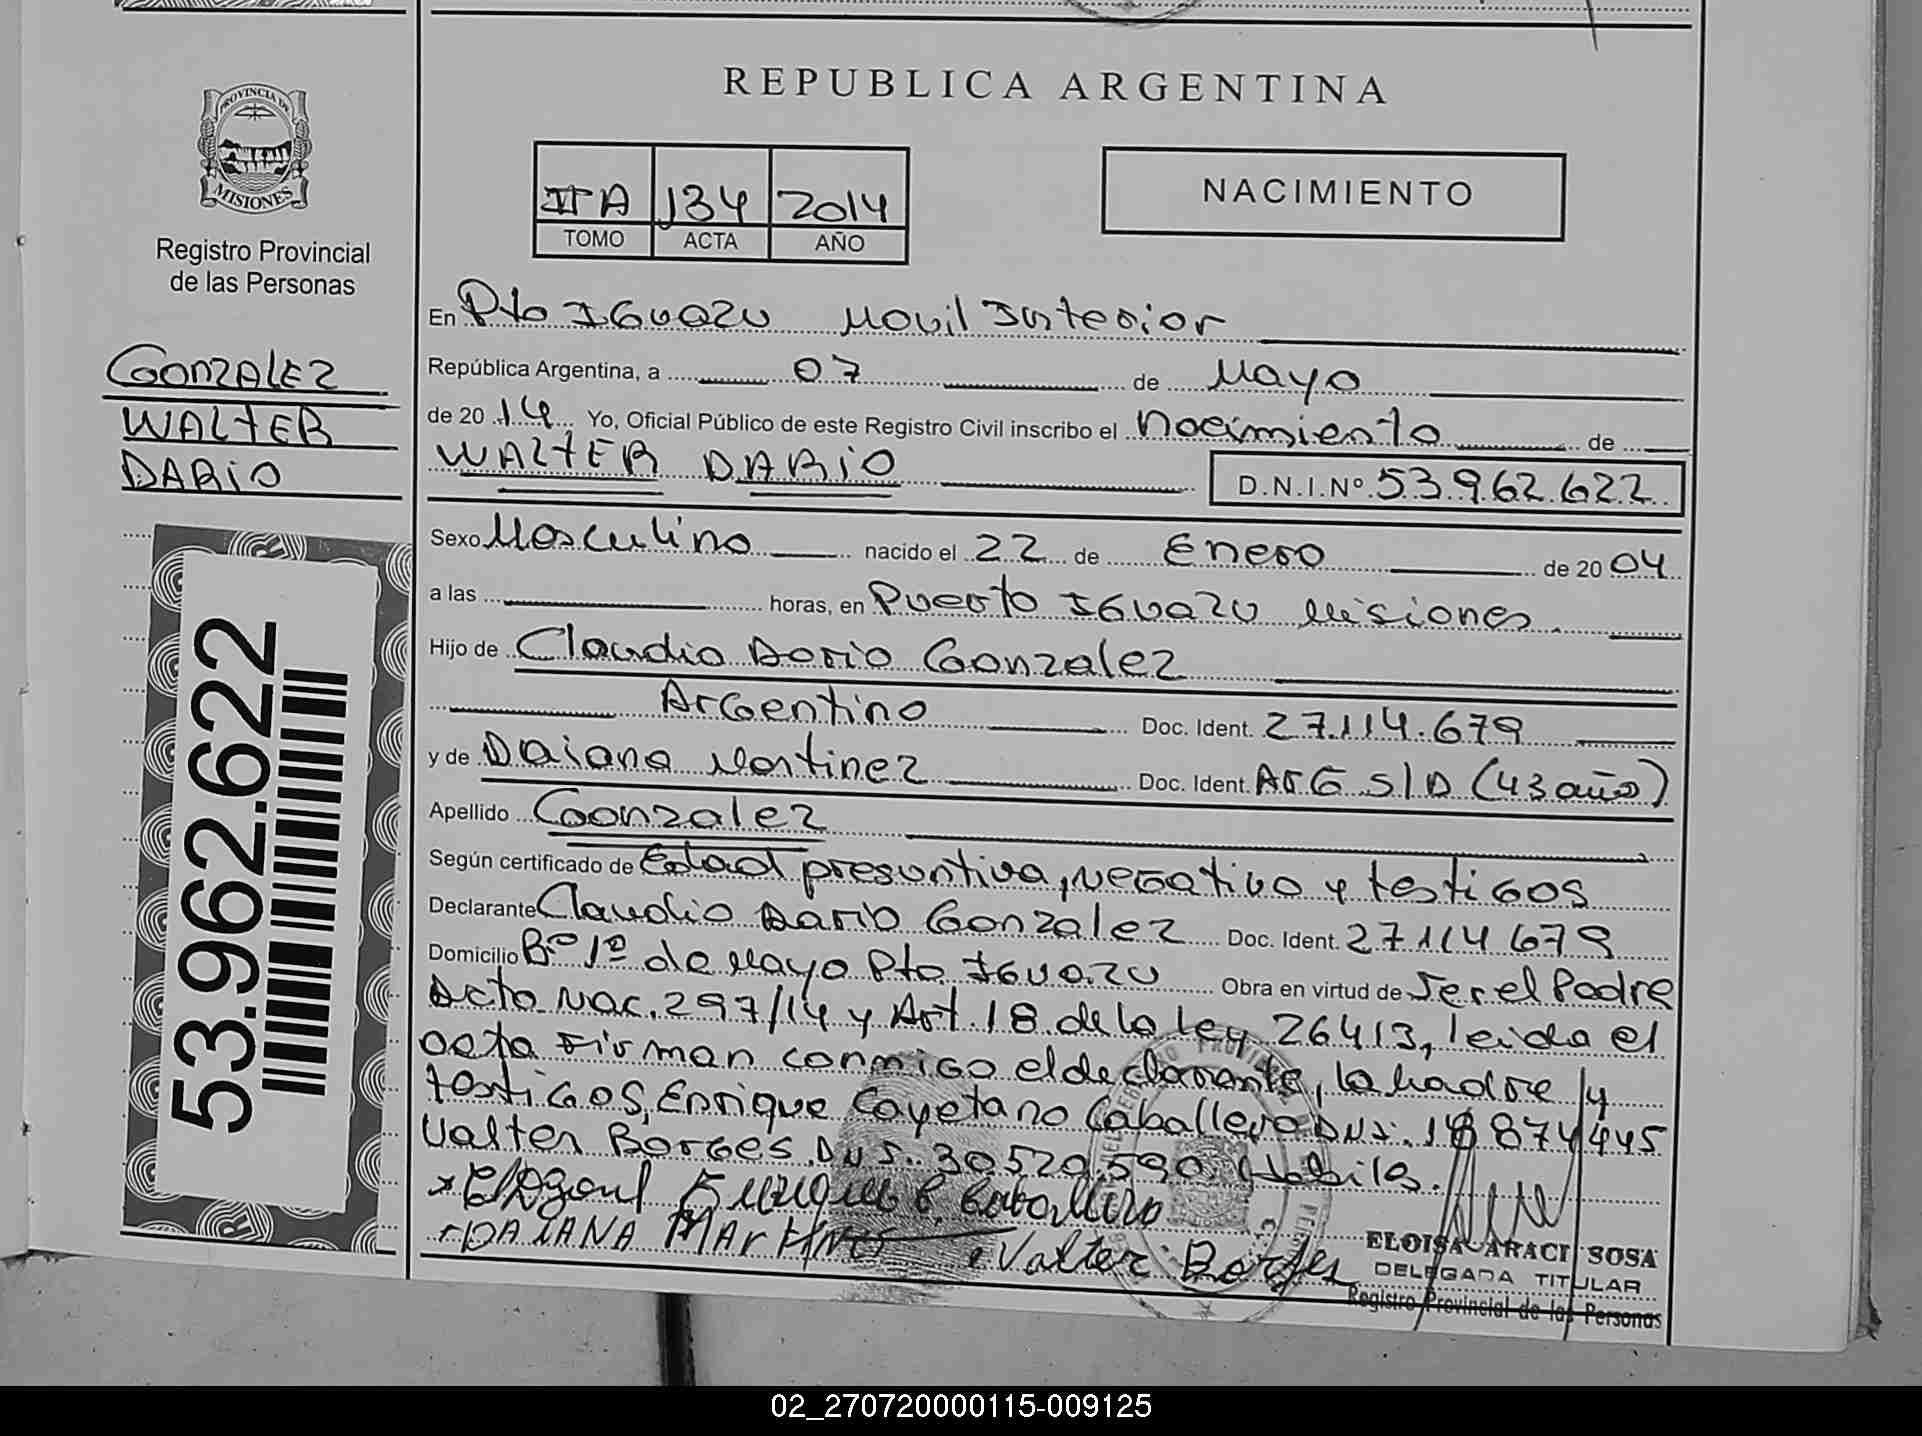 PROVINCIA DE
MISIONES
Registro Provincial
de las Personas
GONZALEZ
WALTER
DARIO
53.962.622
REPUBLICA ARGENTINA
II A 134 2014
TOMO ACTA AÑO
NACIMIENTO
En Pto IGUAZU Movil Interior
República Argentina, a 07 de Mayo
de 20 14 Yo, Oficial Público de este Registro Civil inscribo el nacimiento de
WALTER DARIO D.N.I.Nº 53.962.622
Sexo Masculino nacido el 22 de Enero de 20 04
a las horas, en Puerto IGUAZU Misiones
Hijo de Claudio Dario Gonzalez
Argentino Doc. Ident. 27.114.679
y de Daiana Martinez Doc. Ident. ARG S/D (43 año)
Apellido Gonzalez
Según certificado de Edad presuntiva, negativo y testigos
Declarante Claudio Dario Gonzalez Doc. Ident. 27114679
Domicilio Bº 1º de Mayo Pto IGUAZU Obra en virtud de Ser el Padre
Dcto Nac. 297/14 y Art. 18 de la Ley 26413, leida el
acta Firman conmigo el declarante, la Madre y
testigos, Enrique Cayetano Caballero DNI. 18874445
Valter Borges DNI. 30.520.590 Habiles.
Enrique C. Caballero
DAIANA MARTINES Valter Borges
ELOISA ARACI SOSA
DELEGADA TITULAR
Registro Provincial de las Personas
02_270720000115-009125